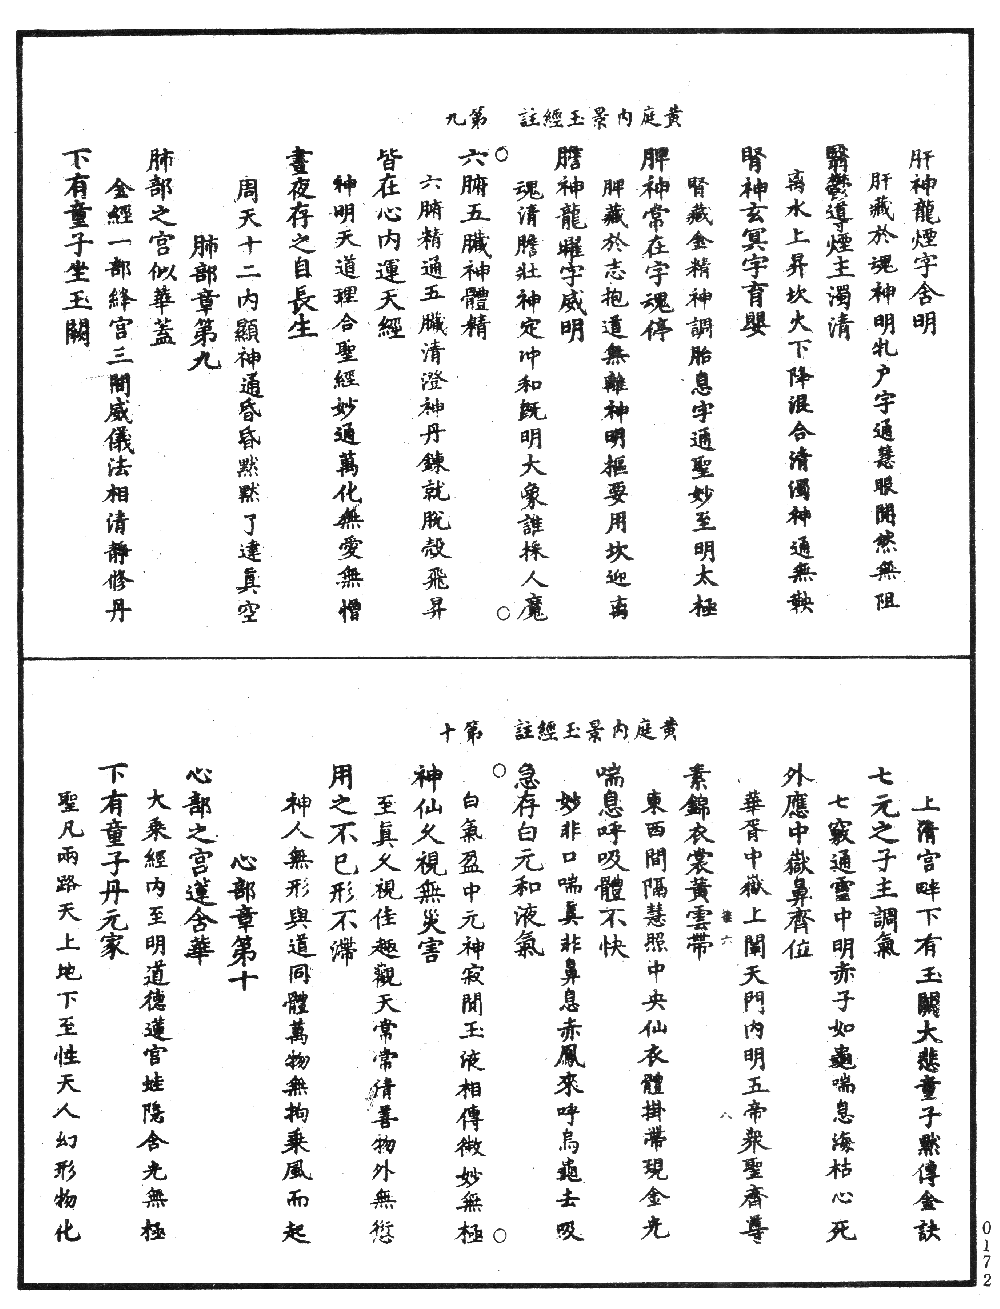 黃庭內景玉經註　第九
肝神龍煙字含明
肝藏於魂神明牝户字通慧眼開然無阻
翳鬱導煙主濁清
离水上昇坎火下降混合清濁神通無鞅
腎神玄冥字育嬰
腎藏金精神調胎息字通聖妙至明太極
脾神常在字魂停
脾藏於志抱道無離神明摳要用坎迎离
膽神龍曜字威明
魂清膽壯神定冲和既明大象誰採人魔
六腑五臟神體精
六腑精通五臟清澄神丹鍊就脫殼飛昇
皆在心內運天經
神明天道理合聖經妙通萬化無愛無憎
晝夜存之自長生
周天十二內顯神通昏昏默默了達真空
肺部章第九
肺部之宮似華蓋
金經一部絳宮三間威儀法相清靜修丹
下有童子坐玉闕
黃庭內景玉經註　第十
上清宮畔下有玉闕大悲童子默傳金訣
七元之子主調氣
七竅通靈中明赤子如龜喘息海枯心死
外應中嶽鼻齊位
華胥中嶽上闡天門內明五帝衆聖齊尊
素錦衣裳黃雲帶
東西間隔慧照中央仙衣體掛帶現金光
喘息呼吸體不快
妙非口喘真非鼻息赤鳳來呼烏龜去吸
急存白元和液氣
白氣盈中元神寂間玉液相傳微妙無極
神仙久視無災害
至真久視佳趣觀天常常清善物外無愆
用之不已形不滯
神人無形與道同體萬物無拘乘風而起
心部章第十
心部之宮蓮含華
大乘經內至明道德蓮宮蛙隱含光無極
下有童子丹元家
聖凡兩路天上地下至性天人幻形物化
0172